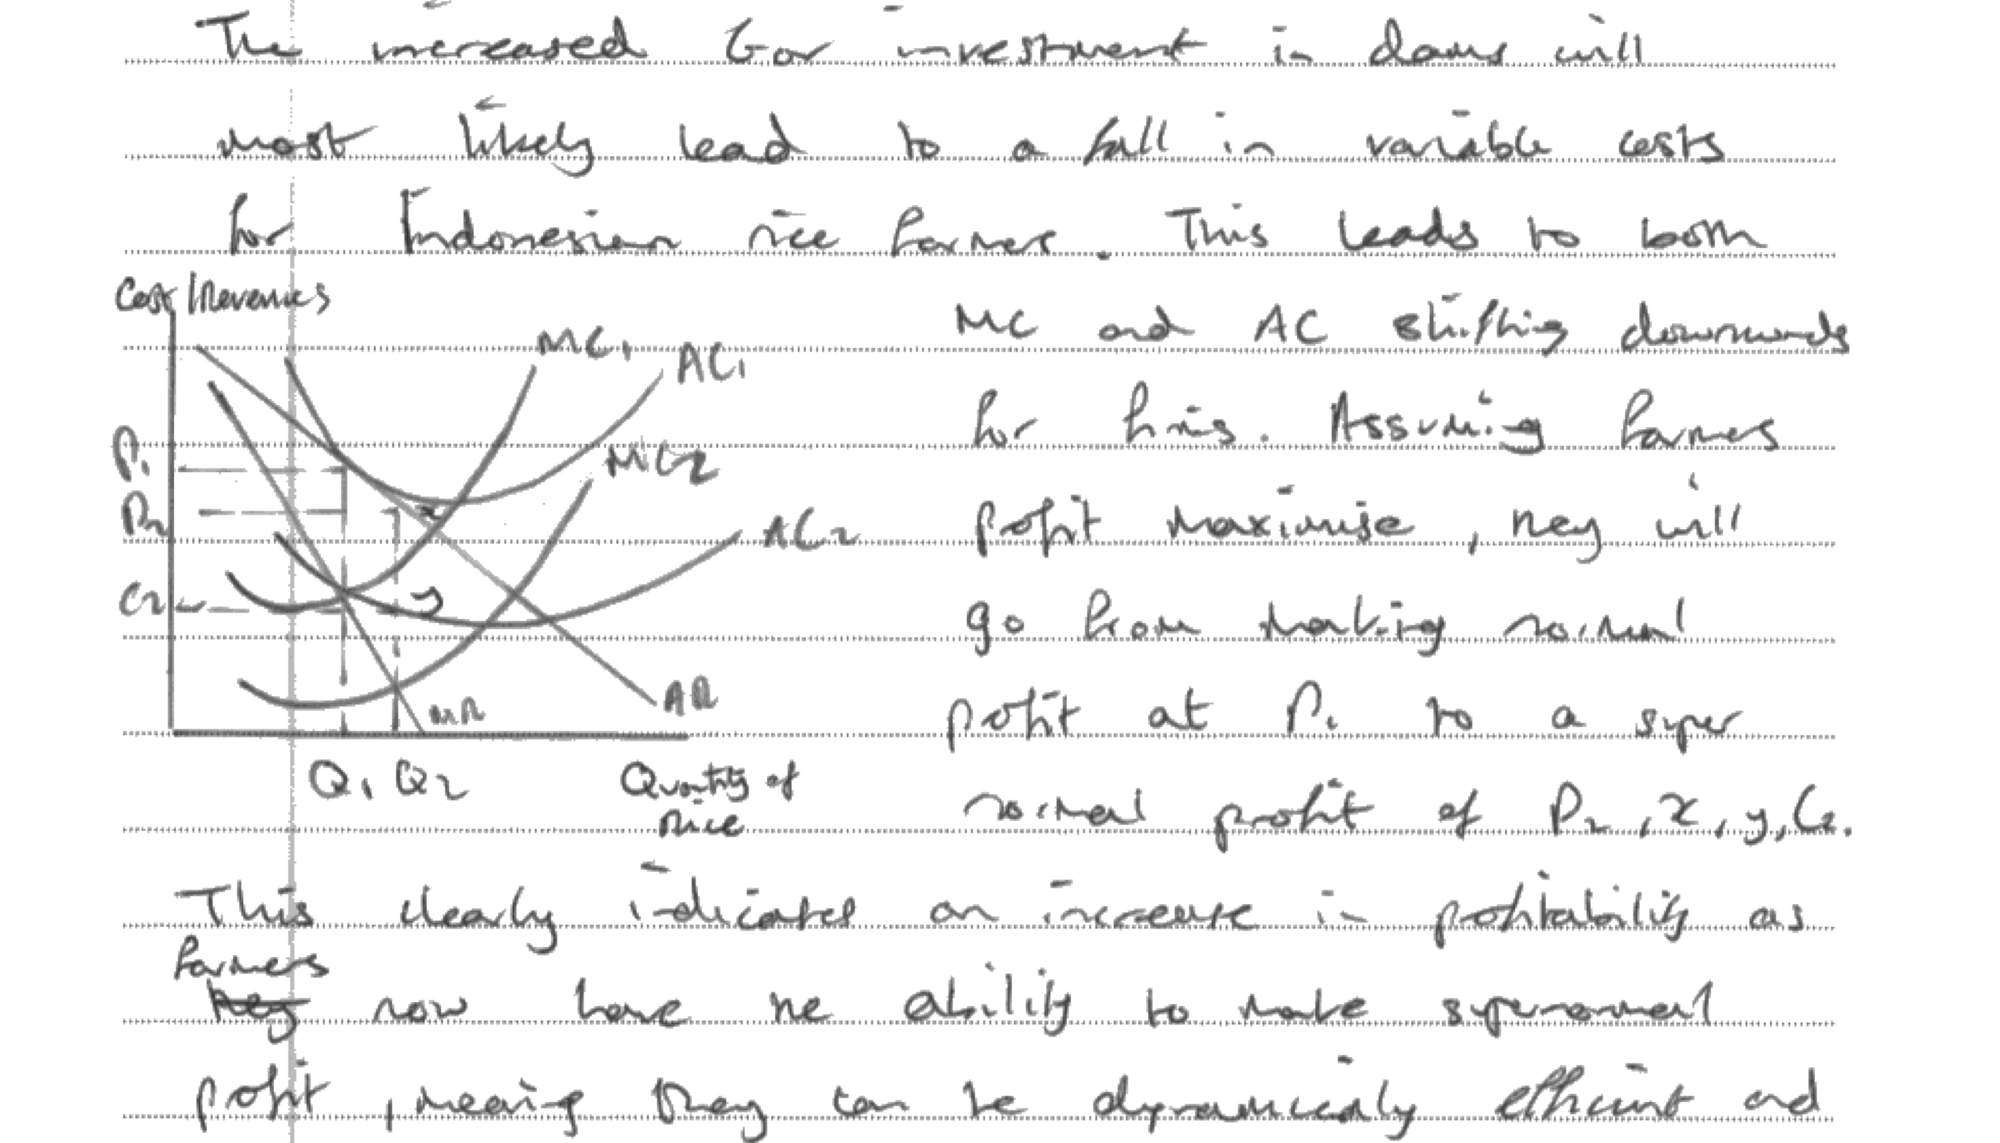 The increased Gov investment in dams will
most likely lead to a fall in variable costs
for Indonesian rice farmers. This leads to both
Cost/Revenues
MC and AC shifting downwards
MC1
AC1
for firms. Assuming farmers
P1
MC2
P2
x
AC2
profit maximise, they will
C2
y
go from making normal
MR
AR
profit at P1 to a super
Q1 Q2
Quantity of
rice
normal profit of P2, x, y, C2.
This clearly indicates an increase in profitability as
farmers
they now have the ability to make supernormal
profit, meaning they can be dynamically efficient and